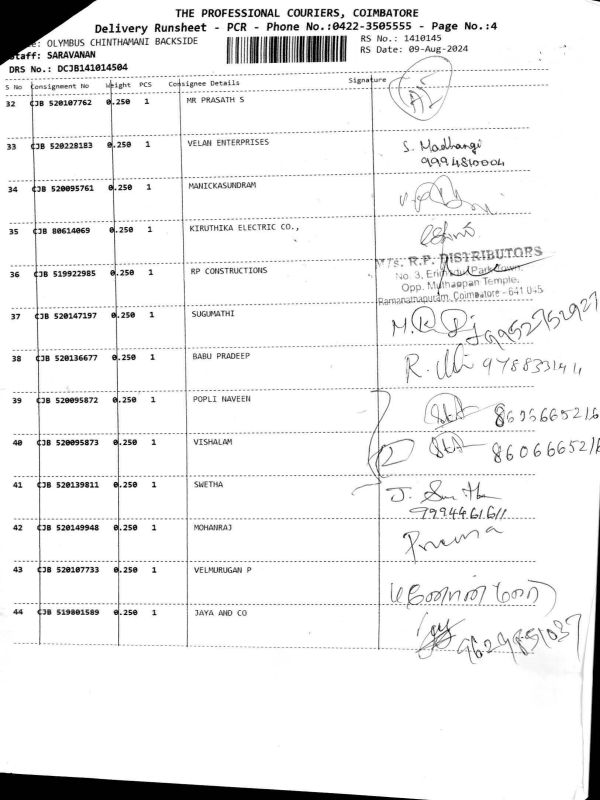 THE PROFESSIONAL COURIERS, COIMBATORE
Delivery Runsheet - PCR - Phone No.:0422-3505555 - Page No.:4
OLYMBUS CHINTHAMANI BACKSIDE RS No.: 1410145
Staff: SARAVANAN RS Date: 09-Aug-2024
DRS No.: DCJB141014504
S No Consignment No Weight PCS Consignee Details Signature
32 CJB 520107762 0.250 1 MR PRASATH S
33 CJB 520228183 0.250 1 VELAN ENTERPRISES S. Madhangi
9994810004
34 CJB 520095761 0.250 1 MANICKASUNDRAM
35 CJB 80614069 0.250 1 KIRUTHIKA ELECTRIC CO.,
M/s. R.P. DISTRIBUTORS
36 CJB 519922985 0.250 1 RP CONSTRUCTIONS No. 3,
Opp. Muthappan Temple,
Ramanathapuram, Coimbatore - 641 045
37 CJB 520147197 0.250 1 SUGUMATHI 9952752927
38 CJB 520136677 0.250 1 BABU PRADEEP R.
39 CJB 520095872 0.250 1 POPLI NAVEEN
40 CJB 520095873 0.250 1 VISHALAM 8606665216
41 CJB 520139811 0.250 1 SWETHA J.
9994461611
42 CJB 520149948 0.250 1 MOHANRAJ Prema
43 CJB 520107733 0.250 1 VELMURUGAN P
44 CJB 519801589 0.250 1 JAYA AND CO 9629851037